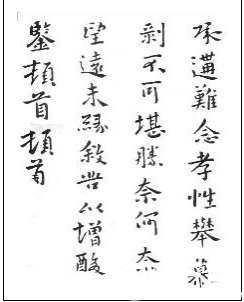 承遘難念孝性攀慕
剝不可堪勝奈何奈
望遠未緣敘苦以增酸
鑒頓首頓首